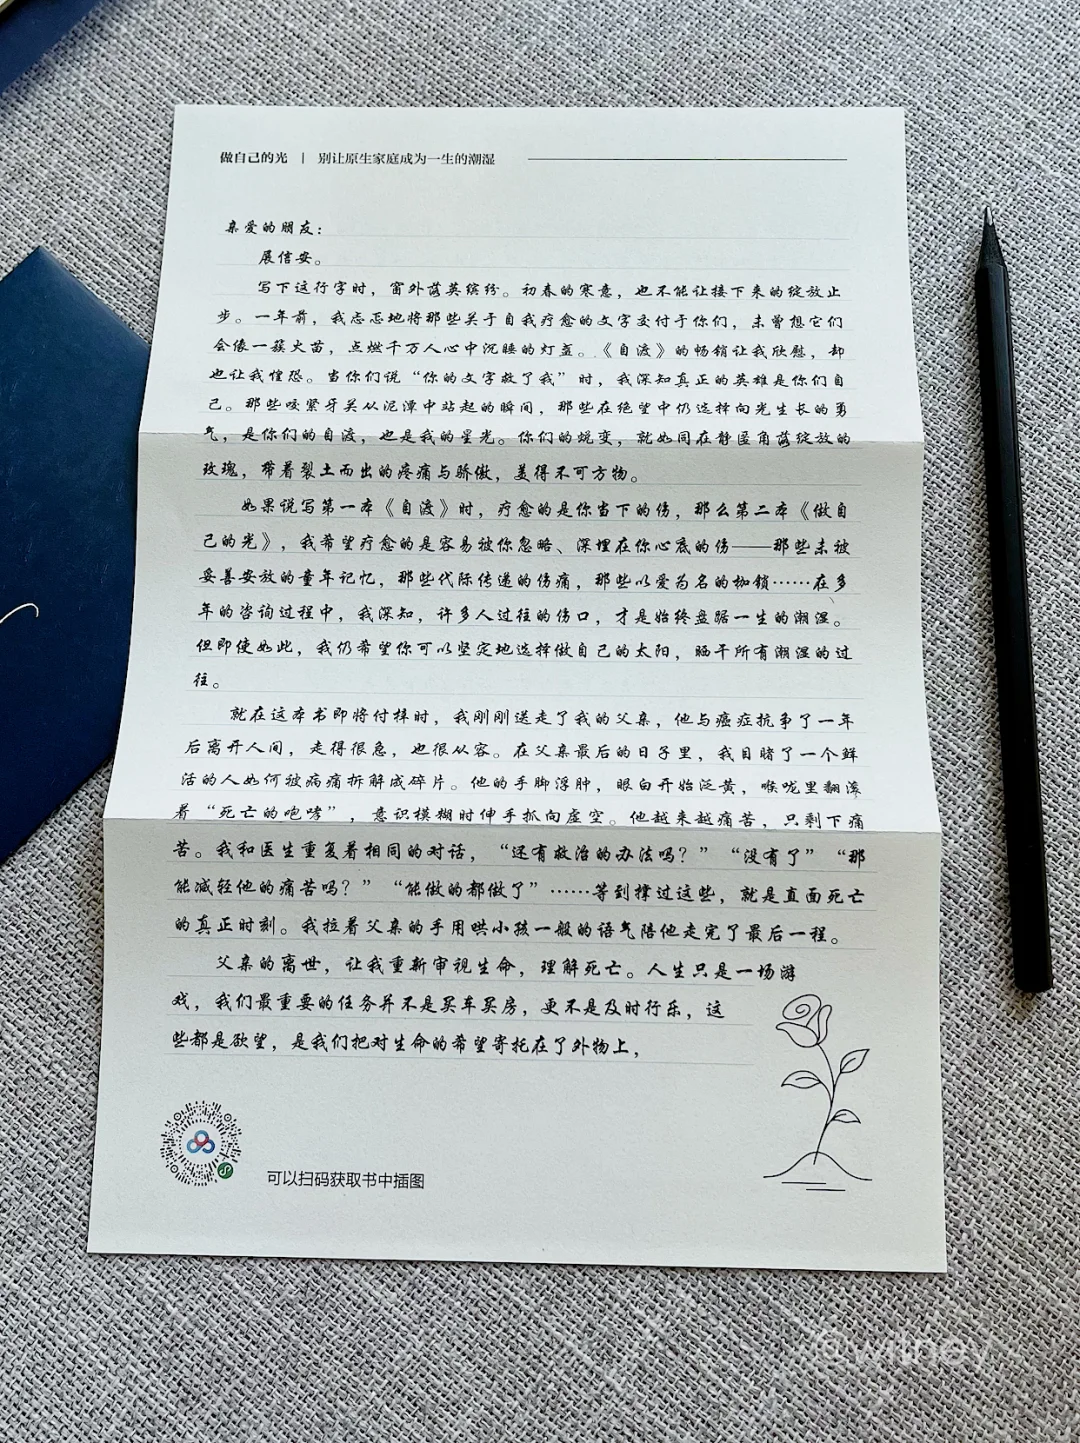 做自己的光 | 别让原生家庭成为一生的潮湿
亲爱的朋友：
展信安。
写下这行字时，窗外落英缤纷。初春的寒意，也不能让接下来的绽放止
步。一年前，我忐忑地将那些关于自我疗愈的文字交付于你们，未曾想它们
会像一簇火苗，点燃千万人心中沉睡的灯盏。《自渡》的畅销让我欣慰，却
也让我惶恐。当你们说“你的文字救了我”时，我深知真正的英雄是你们自
己。那些咬紧牙关从泥潭中站起的瞬间，那些在绝望中仍选择向光生长的勇
气，是你们的自渡，也是我的星光。你们的蜕变，就如同在静谧角落绽放的
玫瑰，带着裂土而出的疼痛与骄傲，美得不可方物。
如果说写第一本《自渡》时，疗愈的是你当下的伤，那么第二本《做自
己的光》，我希望疗愈的是容易被你忽略、深埋在你心底的伤——那些未被
妥善安放的童年记忆，那些代际传递的伤痛，那些以爱为名的枷锁……在多
年的咨询过程中，我深知，许多人过往的伤口，才是始终盘踞一生的潮湿。
但即使如此，我仍希望你可以坚定地选择做自己的太阳，晒干所有潮湿的过
往。
就在这本书即将付梓时，我刚刚送走了我的父亲，他与癌症抗争了一年
后离开人间，走得很急，也很从容。在父亲最后的日子里，我目睹了一个鲜
活的人如何被病痛拆解成碎片。他的手脚浮肿，眼白开始泛黄，喉咙里翻滚
着“死亡的咆哮”，意识模糊时伸手抓向虚空。他越来越痛苦，只剩下痛
苦。我和医生重复着相同的对话，“还有救治的办法吗？”“没有了”“那
能减轻他的痛苦吗？”“能做的都做了”……等到撑过这些，就是直面死亡
的真正时刻。我拉着父亲的手用哄小孩一般的语气陪他走完了最后一程。
父亲的离世，让我重新审视生命，理解死亡。人生只是一场游
戏，我们最重要的任务并不是买车买房，更不是及时行乐，这
些都是欲望，是我们把对生命的希望寄托在了外物上，
可以扫码获取书中插图
@witney